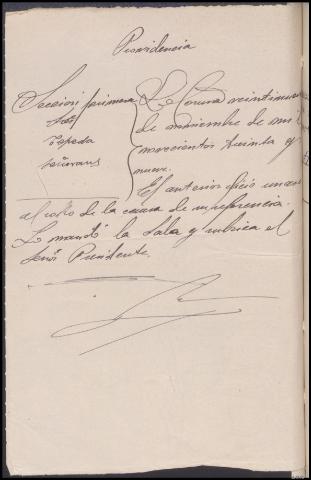 Providencia
Sección primera
Tejeda
La Coruña veintinueve
de noviembre de mil
novecientos treinta y
nueve.
El anterior oficio únase
al rollo de la causa de su referencia.
Lo mandó la Sala y rubrica el
Señor Presidente.